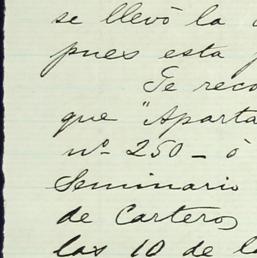 se llevó la
pues esta
Te reco
que "Aparta
nº 250 — ó
Seminario
de Carteros
las 10 de la